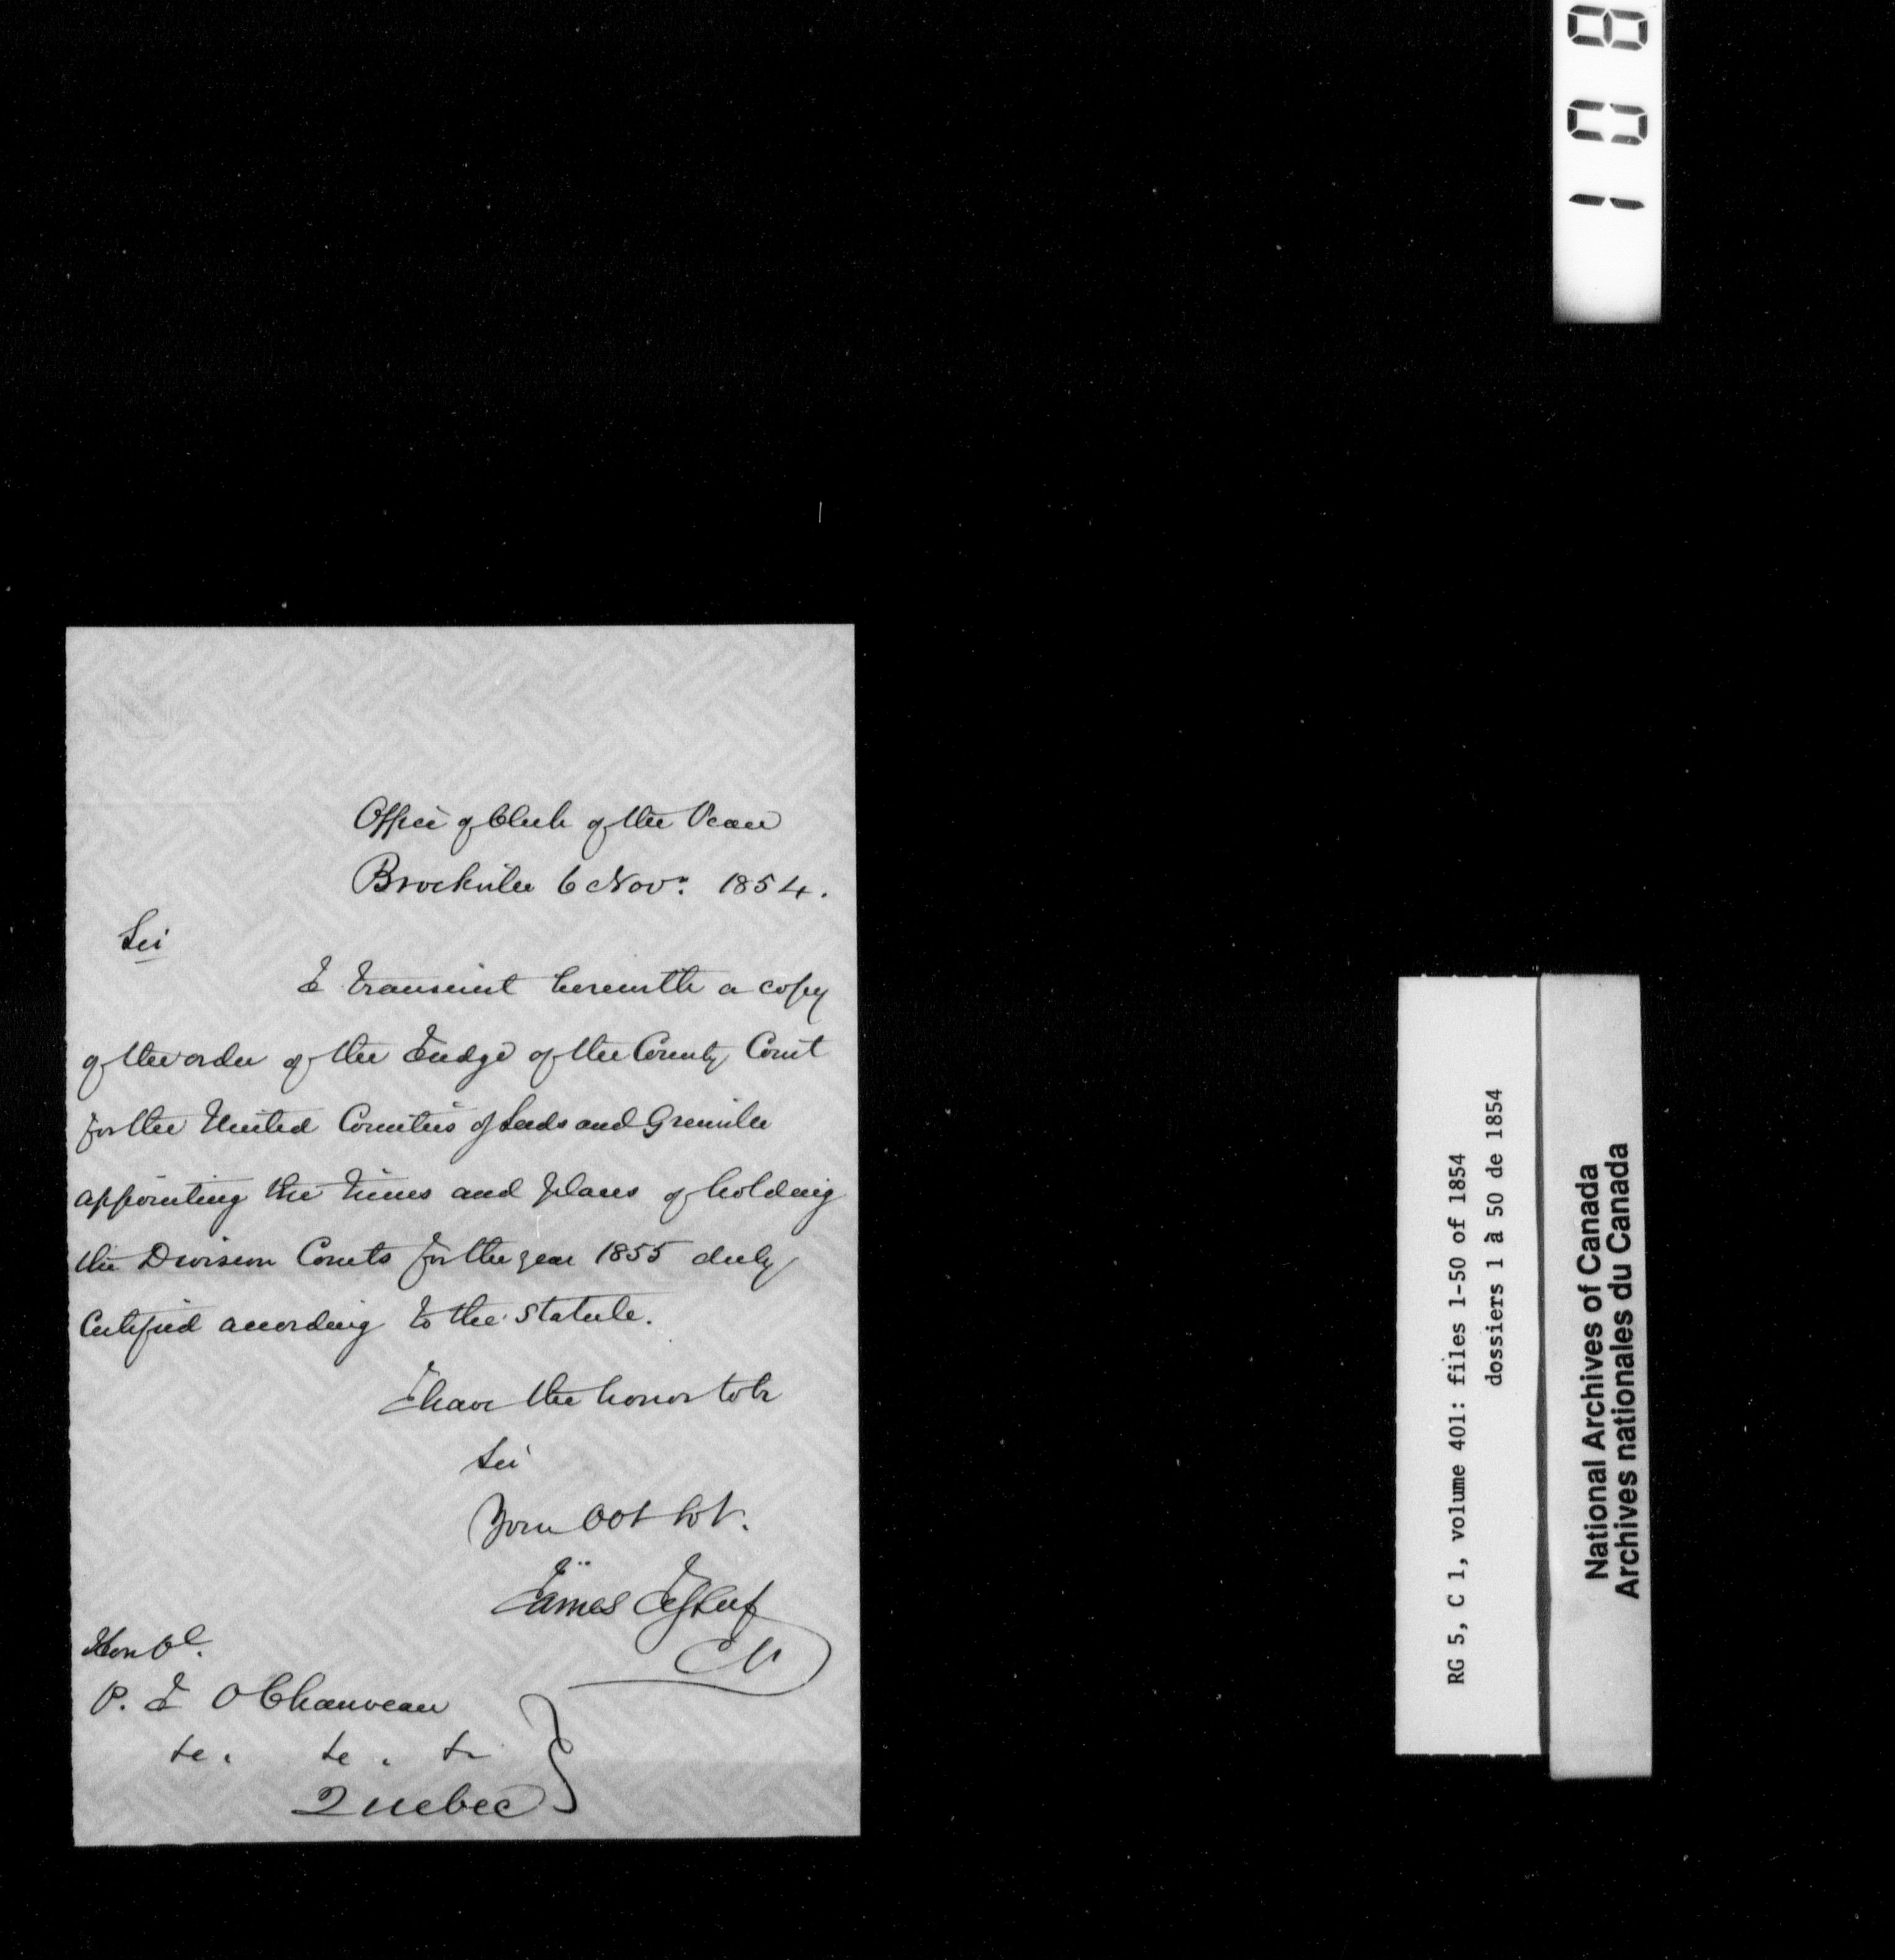 Office of Clerk of the Peace
Brockville 6 Nov: 1854.
Sir
I transmit herewith a copy
of the order of the Judge of the County Court
for the United Counties of Leeds and Grenville
appointing the times and places of holding
the Division Courts for the year 1855 duly
Certified according to the Statute.
I have the honor to be
Sir
Your Obt Svt.
James Jessup
CP
Honbl.
P. J O Chauveau
&c. &c. &c
Quebec
108
RG 5, C 1, volume 401: files 1-50 of 1854
dossiers 1 à 50 de 1854
National Archives of Canada
Archives nationales du Canada